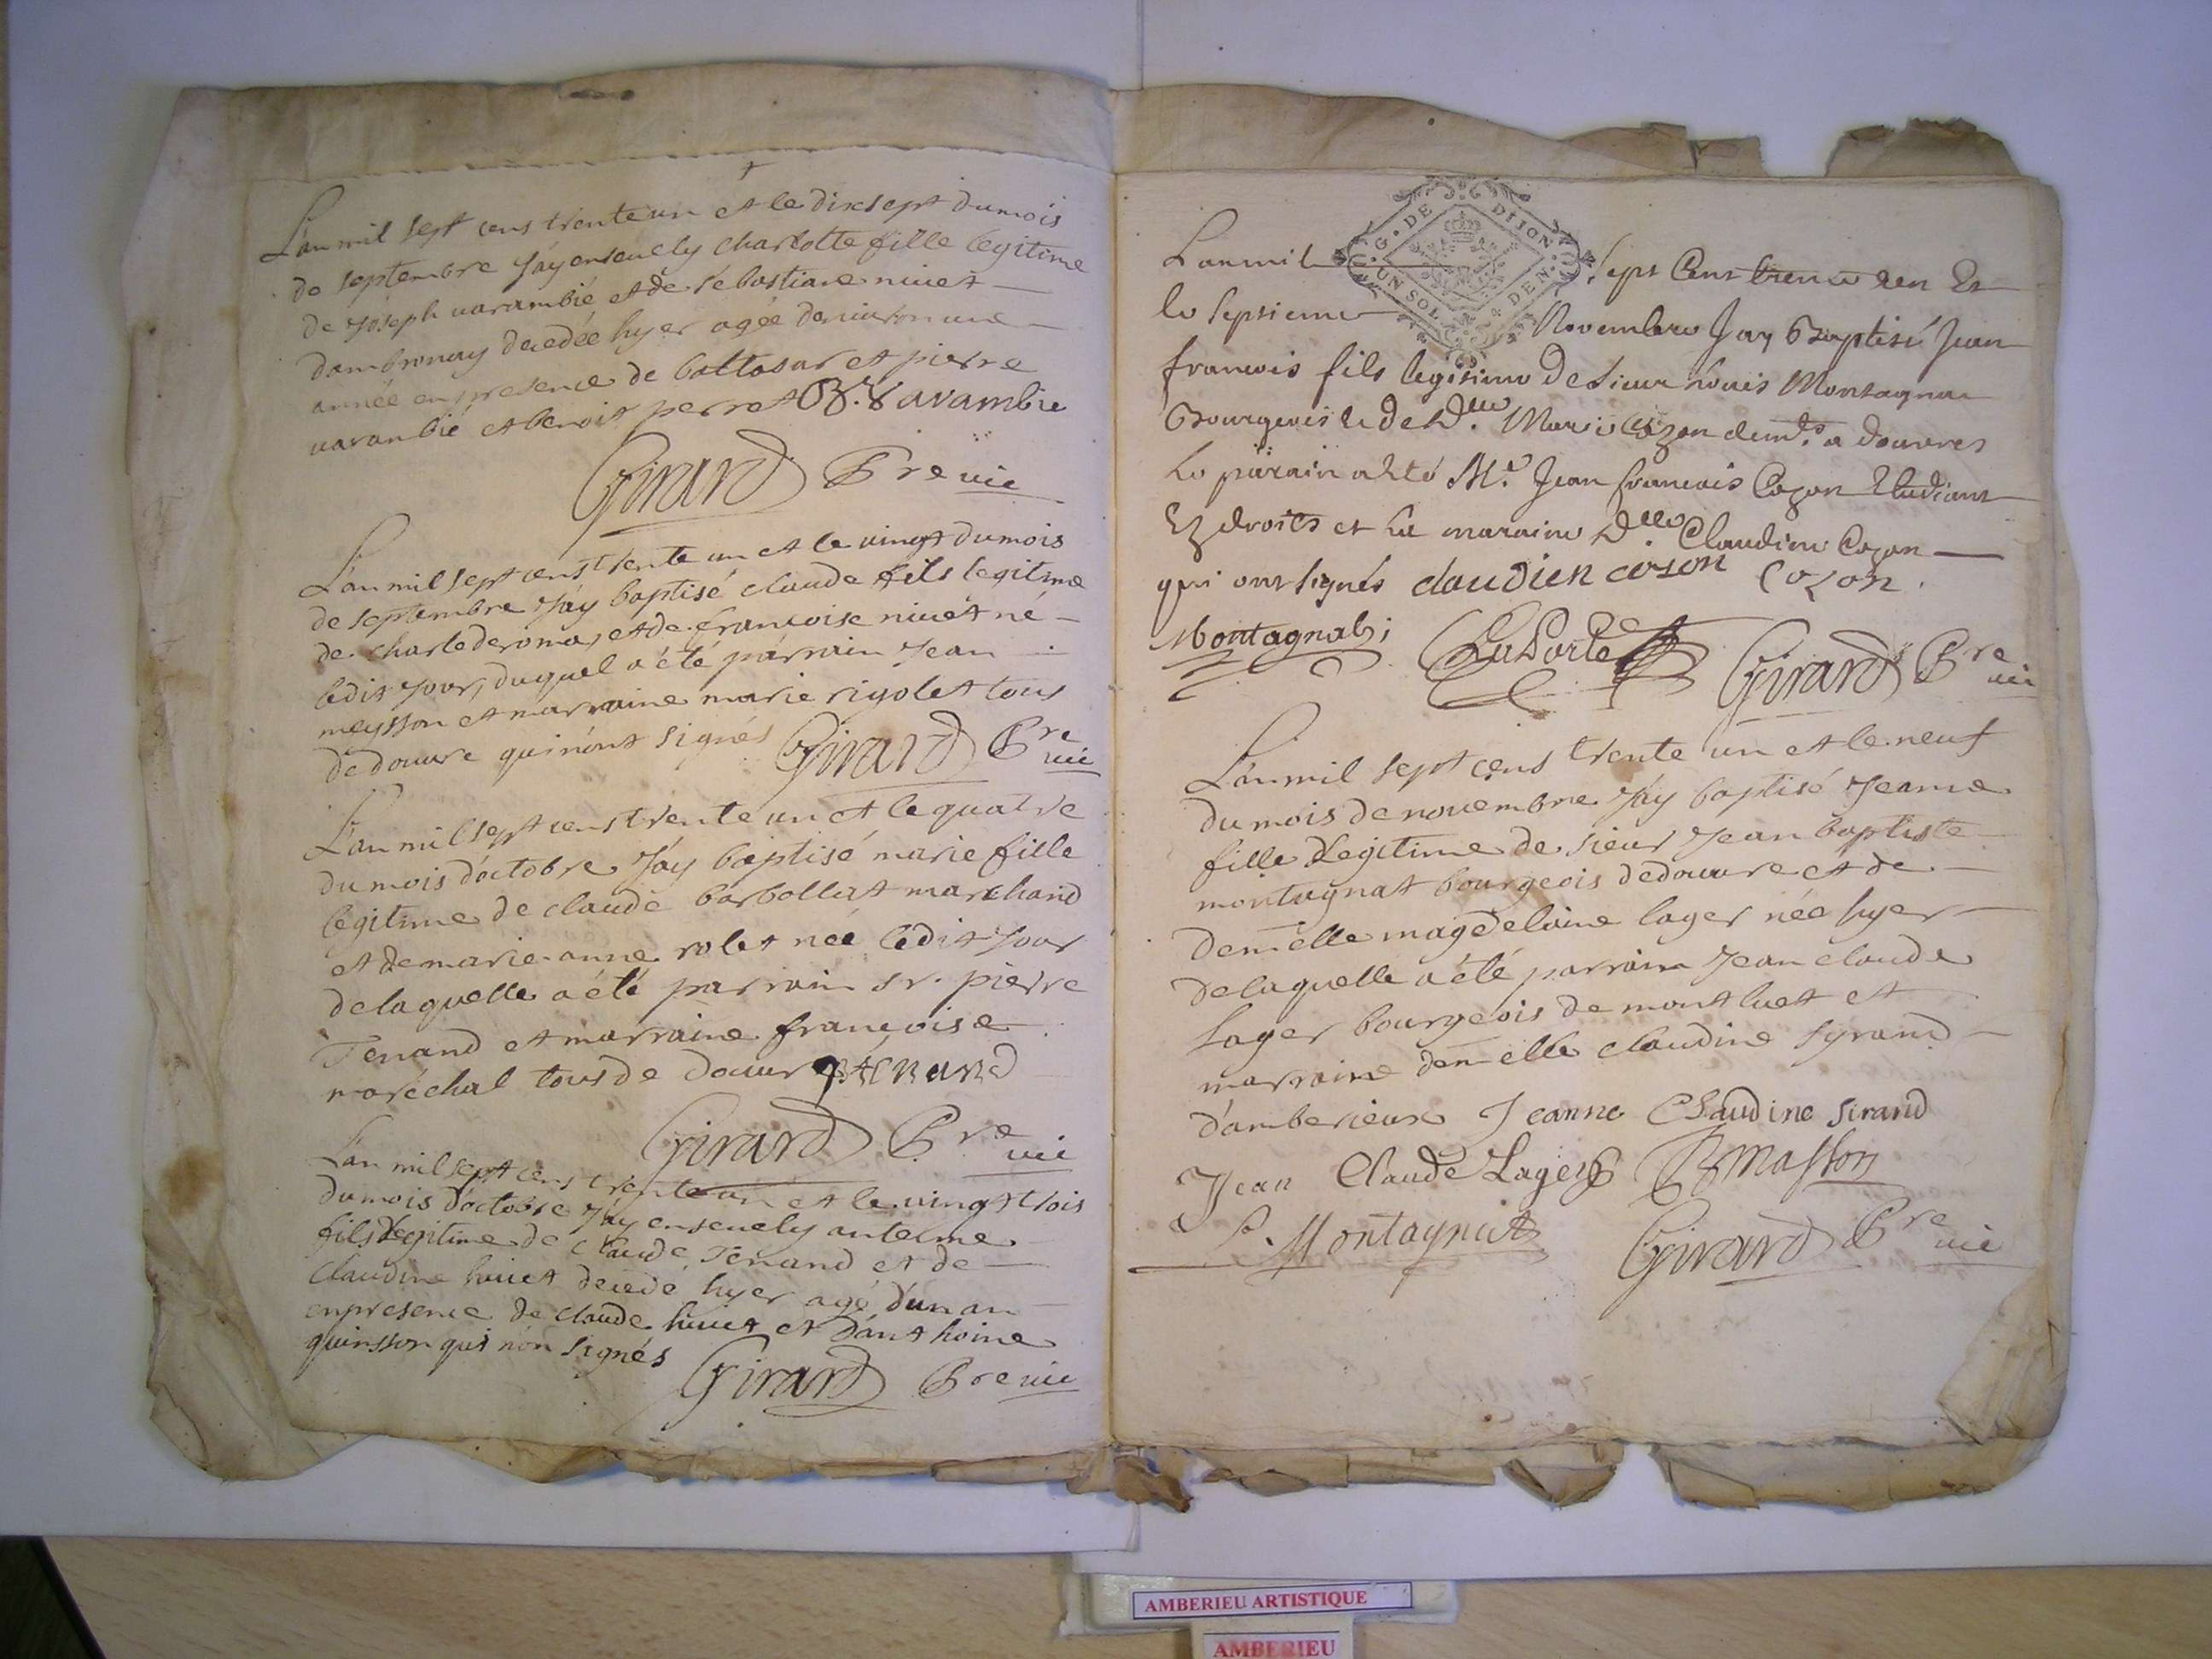 L'an mil sept cens trente un et le dix sept du mois
de septembre j'áy enseuely charlotte fille legitime
de joseph uarambié et de sébastiane niuet
dambronay decedée hyer agée denuiron une
année en presence de baltasar et pierre
uarambié et benoit perret B. Varambie
Girard Pre uic
L'an mil sept cens trente un et le uingt du mois
de septembre j'áy baptisé claude fils legitime
de charle deroma, et de françoise niuét né
ledit jour, duquel a été parrain jean
meysson et marraine marie rigolet tous
de douure qui n'ont signés Girard Pre uic
L'an mil sept cens trente un et le quatre
du mois d'octobre j'áy baptisé marie fille
legitime de claude barbollat marchand
et de marie anne rolet née ledit jour
de laquelle a été parrain sr. pierre
Tenand et marraine françoise
maréchal tous de douure P TENAND
Girard Pre uic
L'an mil sept cens trente un et le uingt trois
du mois d'octobre j'áy enseuely antelme
fils legitime de claude Tenand et de
claudine huiet decedé hyer agé d'un an
en presence de claude huiet et d'anthoine
quinsson qui n'on signés
Girard Pre uic
G. DE DIJON
UN SOL 4 DEN.
L'an mil Sept Cens trente un Et
le septieme Novembre Jay Baptisé Jean
francois fils legitime de Sieur Louis Montagnat
Bourgeois & de Dlle. Marie Cozon demts. a douvres
Le parain a été Mr. Jean francois Cozon Etudiant
Ez droits et La maraine Dlle. Claudine Cozon
qui ont signés claudien coson Cozon.
Montagnat; LaPorte Girard Pre uic
L'an mil sept cens trente un et le neuf
du mois de nouembre j'áy baptisé jeanne
fille legitime de sieur jean baptiste
montagnat bourgeois de douure et de
demelle magdelaine lager née hyer
de laquelle a été parrain jean claude
Lager bourgeois de montluet et
marraine demelle claudine syrand
d'amberieux Jeanne Claudine Sirand
Jean Claude Lager Masson
Montagnat Girard Pre uic
AMBERIEU ARTISTIQUE
AMBERIEU